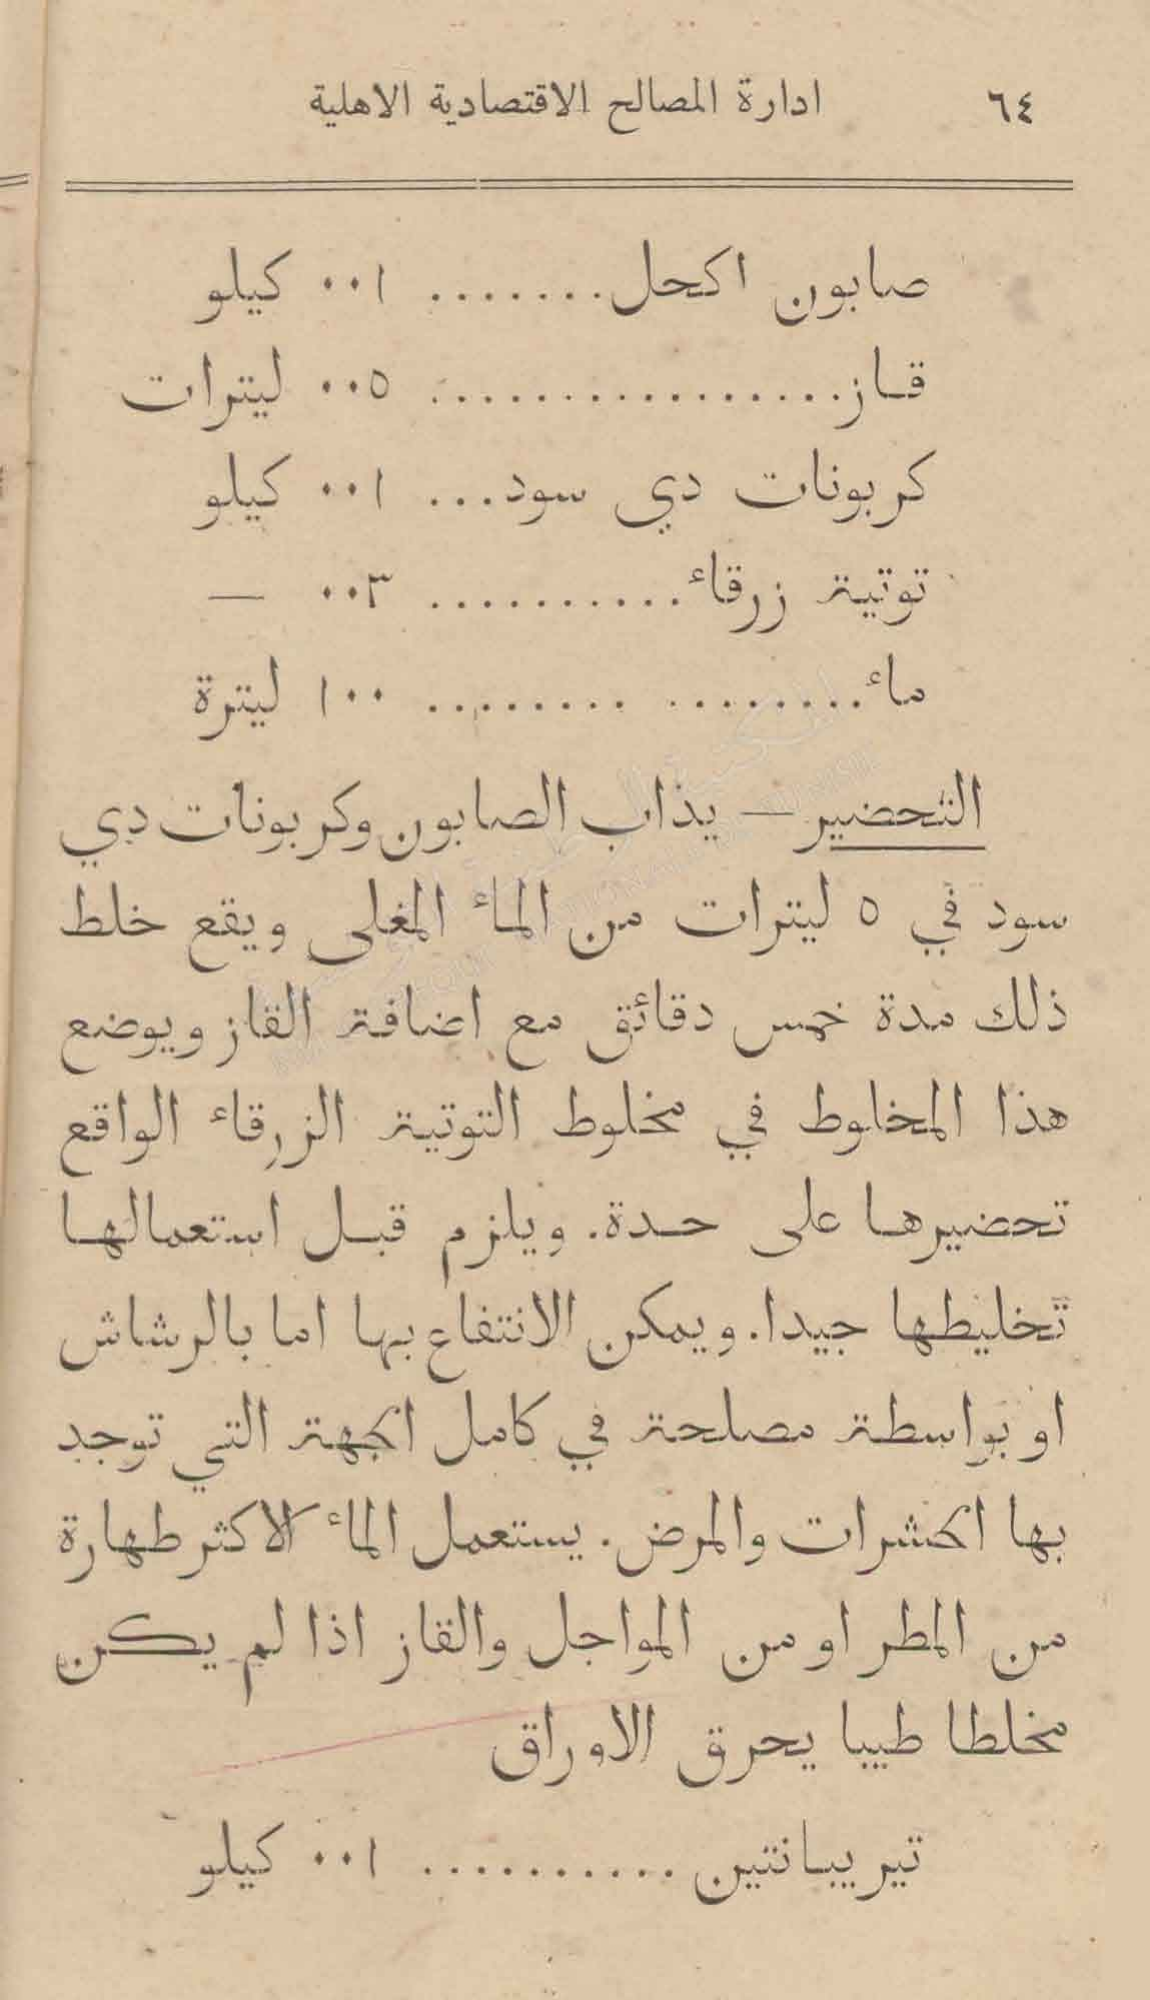 ٦٤ ادارة المصالح الاقتصادية الاهلية
صابون اكحل....... ٠٠١ كيلو
قاز................ ٠٠٥ ليترات
كربونات دي سود... ٠٠١ كيلو
توتية زرقاء.......... ٠٠٣ —
ماء................ ١٠٠ ليترة
التحضير — يذاب الصابون وكربونات دي
سود في ٥ ليترات من الماء المغلى ويقع خلط
ذلك مدة خمس دقائق مع اضافة القاز ويوضع
هذا المخلوط في مخلوط التوتية الزرقاء الواقع
تحضيرها على حدة. ويلزم قبل استعمالها
تخليطها جيدا. ويمكن الانتفاع بها اما بالرشاش
او بواسطة مصلحة في كامل الجهة التي توجد
بها الحشرات والمرض. يستعمل الماء الاكثر طهارة
من المطر او من المواجل والقاز اذا لم يكن
مخلطا طيبا يحرق الاوراق
تيريبانتين .......... ٠٠١ كيلو